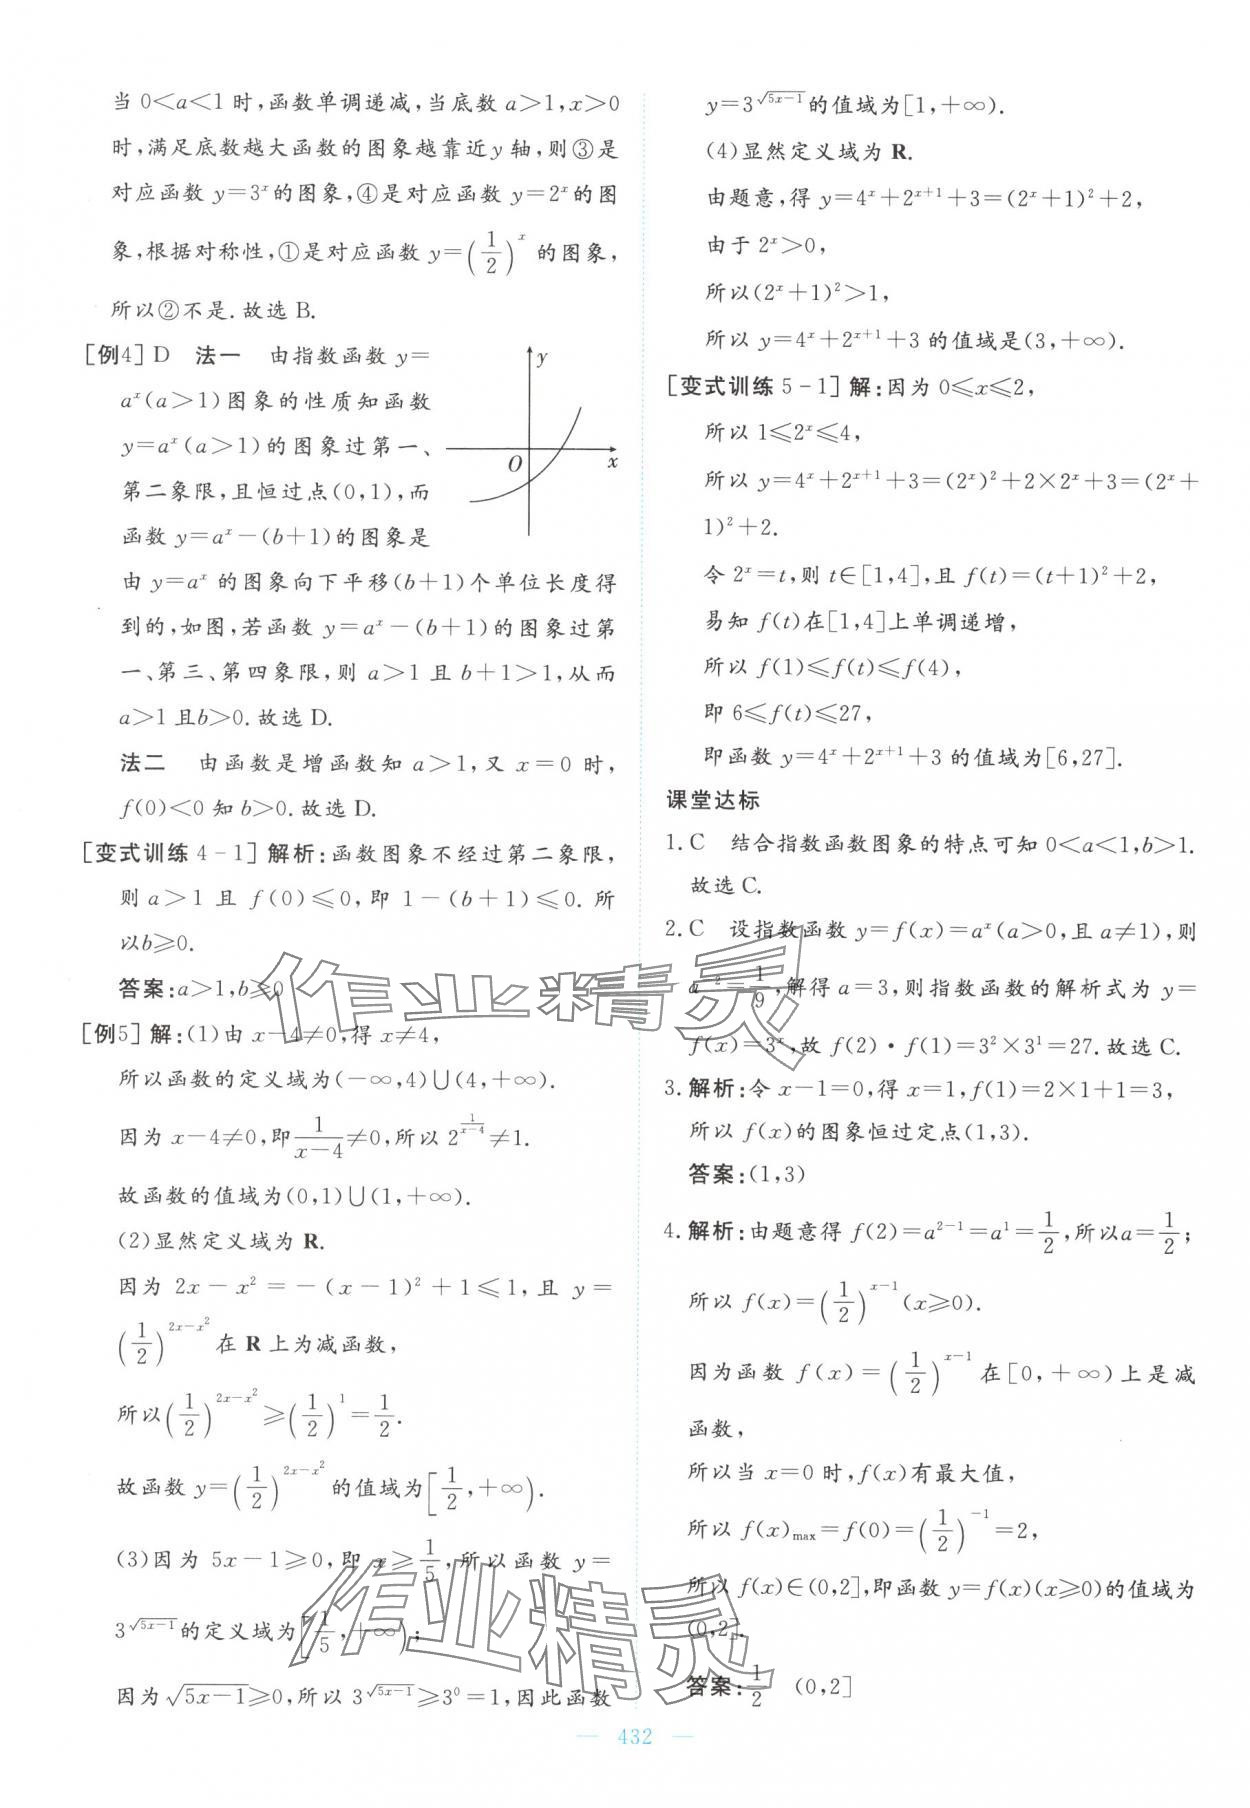 当 0<a<1 时,函数单调递减,当底数 a>1,x>0
时,满足底数越大函数的图象越靠近y轴,则③是
对应函数 y=3^x的图象,④是对应函数 y=2^x的图
象,根据对称性,①是对应函数 y=(1/2)^x 的图象,
所以②不是.故选 B.
[例4] D 法一 由指数函数 y=
a^x(a>1)图象的性质知函数
y=a^x(a>1)的图象过第一、
第二象限,且恒过点(0,1),而
函数 y=a^x-(b+1)的图象是
由 y=a^x 的图象向下平移(b+1)个单位长度得
到的,如图,若函数 y=a^x-(b+1)的图象过第
一、第三、第四象限,则 a>1 且 b+1>1,从而
a>1 且b>0.故选 D.
y
O
x
法二 由函数是增函数知 a>1,又 x=0 时,
f(0)<0 知 b>0.故选 D.
[变式训练 4-1] 解析:函数图象不经过第二象限,
则 a>1 且 f(0)≤0,即 1-(b+1)≤0.所
以b≥0.
答案:a>1,b≥0
[例5] 解:(1)由 x-4≠0,得 x≠4,
所以函数的定义域为(-∞,4)∪(4,+∞).
因为 x-4≠0,即1/(x-4)≠0,所以 2^(1/(x-4))≠1.
故函数的值域为(0,1)∪(1,+∞).
(2)显然定义域为 R.
因为 2x-x²=-(x-1)²+1≤1,且 y=
(1/2)^(2x-x²) 在 R 上为减函数,
所以(1/2)^(2x-x²)≥(1/2)^1=1/2.
故函数 y=(1/2)^(2x-x²) 的值域为[1/2,+∞).
(3)因为 5x-1≥0,即 x≥1/5,所以函数 y=
3^√(5x-1)的定义域为[1/5,+∞);
因为√(5x-1)≥0,所以 3^√(5x-1)≥3^0=1,因此函数
y=3^√(5x-1)的值域为[1,+∞).
(4)显然定义域为 R.
由题意,得 y=4^x+2^(x+1)+3=(2^x+1)²+2,
由于 2^x>0,
所以(2^x+1)²>1,
所以 y=4^x+2^(x+1)+3 的值域是(3,+∞).
[变式训练 5-1] 解:因为 0≤x≤2,
所以 1≤2^x≤4,
所以 y=4^x+2^(x+1)+3=(2^x)²+2×2^x+3=(2^x+
1)²+2.
令 2^x=t,则 t∈[1,4],且 f(t)=(t+1)²+2,
易知 f(t)在[1,4]上单调递增,
所以 f(1)≤f(t)≤f(4),
即 6≤f(t)≤27,
即函数 y=4^x+2^(x+1)+3 的值域为[6,27].
课堂达标
1.C 结合指数函数图象的特点可知 0<a<1,b>1.
故选 C.
2.C 设指数函数 y=f(x)=a^x(a>0,且 a≠1),则
a^-2=1/9,解得 a=3,则指数函数的解析式为 y=
f(x)=3^x,故 f(2)·f(1)=3²×3^1=27.故选 C.
3.解析:令 x-1=0,得 x=1,f(1)=2×1+1=3,
所以 f(x)的图象恒过定点(1,3).
答案:(1,3)
4.解析:由题意得 f(2)=a^(2-1)=a^1=1/2,所以a=1/2;
所以 f(x)=(1/2)^(x-1)(x≥0).
因为函数 f(x)=(1/2)^(x-1) 在[0,+∞)上是减
函数,
所以当 x=0 时,f(x)有最大值,
所以 f(x)max=f(0)=(1/2)^-1=2,
所以 f(x)∈(0,2],即函数 y=f(x)(x≥0)的值域为
(0,2].
答案:1/2 (0,2]
作业精灵
作业精灵
— 432 —